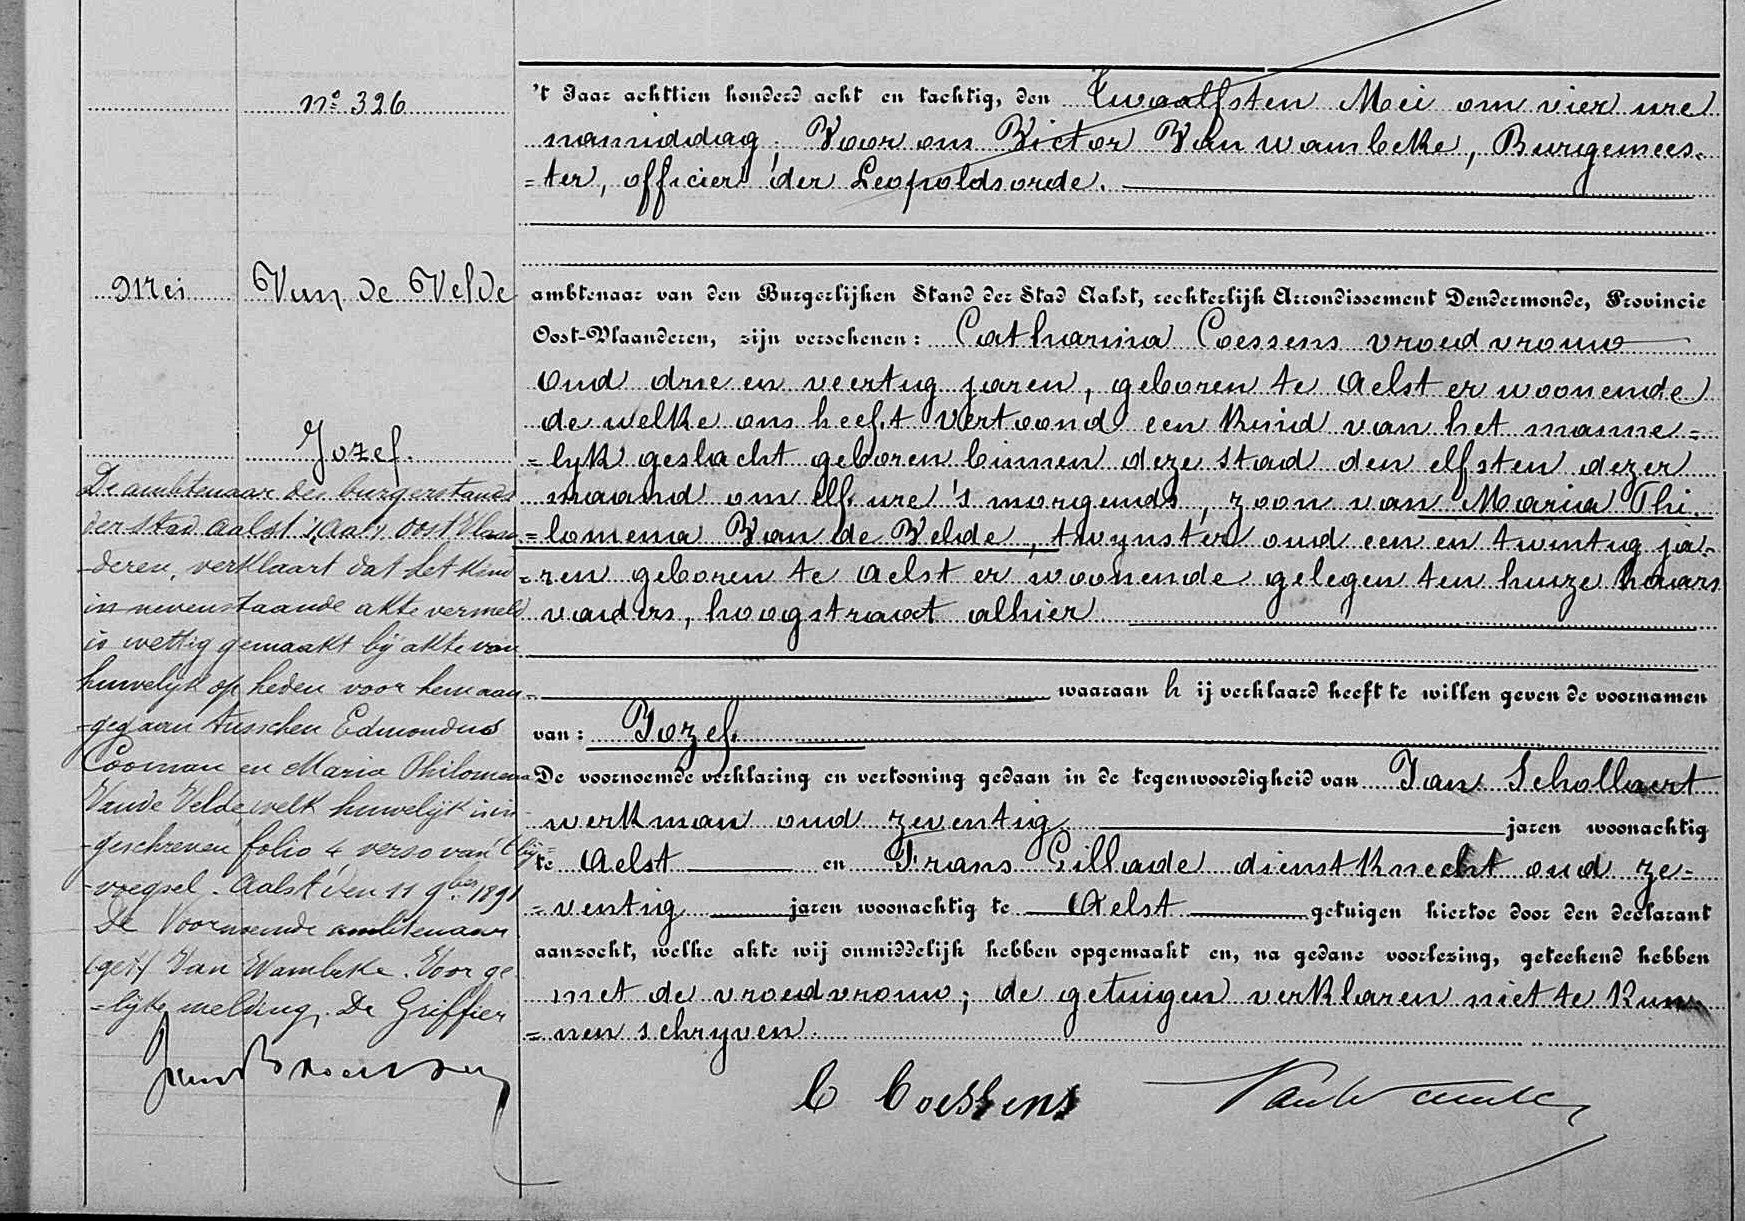 nº 326
Mei
Van de Velde
Jozef.
De ambtenaar der burgerstands
der stad Aalst, (Aa) Oost Vlaan
-deren, verklaart dat het kind
in nevenstaande akte vermeld
is wettig gemaakt bij akte van
huwelijk op heden voor hem aan
-gegaan tusschen Edmondus
Cooman en Maria Philomena
Vande Velde, welk huwelijk is in
-geschreven folio 4 verso van 't bij=
-voegsel. Aalst den 11 9ber 1891
De Voornoemde ambtenaar
(get) Van Wambeke. Voor ge
=lijke melding, De Griffier
't Jaar achttien honderd acht en tachtig, den Twaalfsten Mei om vier ure
namiddag; Voor ons Victor Van Wambeke, Burgemees-
=ter, officier der Leopoldsorde.
ambtenaar van den Burgerlijken Stand der Stad Aalst, rechterlijk Arrondissement Dendermonde, Provincie
Oost-Vlaanderen, zijn verschenen: Catharina Coessens vroedvrouw
oud drie en veertig jaren, geboren te Aelst er woonende
de welke ons heeft vertoond een kind van het manne=
=lyk geslacht geboren binnen deze stad den elfsten dezer
maand om elf ure 's morgends, zoon van Maria Phi-
=lomena Van de Velde, twynster oud een en twintig ja-
=ren geboren te Aelst er woonende gelegen ten huize haars
vaders, hoogstraat alhier
waaraan h ij verklaard heeft te willen geven de voornamen
van: Jozef.
De voornoemde verklaring en vertooning gedaan in de tegenwoordigheid van Jan Schollaert
werkman oud zeventig jaren woonachtig
te Aelst en Frans Gillade dienstknecht oud ze-
=ventig jaren woonachtig te Aelst getuigen hiertoe door den declarant
aanzocht, welke akte wij onmiddelijk hebben opgemaakt en, na gedane voorlezing, geteekend hebben
met de vroedvrouw; de getuigen verklaren niet te kun
=nen schryven.
C Coessens VanWambeke